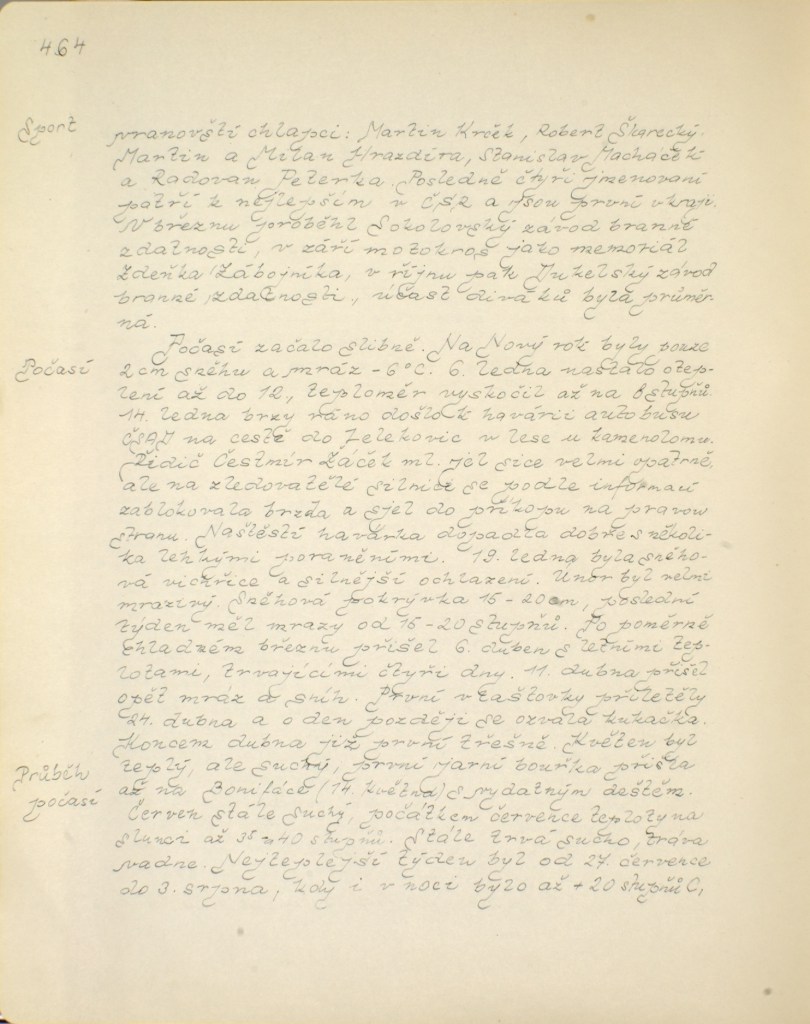 464
Sport
vranovští chlapci: Martin Krček, Robert Škarecký.
Martin a Milan Hrazdíra, Stanislav Macháček
a Radovan Peterka. Posledně čtyři jmenovaní
patří k nejlepším v ČSR a jsou první v kraji.
V březnu proběhl Sokolovský závod branné
zdatnosti, v září motokros jako memoriál
Zdeňka Zábojníka, v říjnu pak Dukelský závod
branné zdatnosti, účast diváků byla průměr-
ná.
Počasí
Počasí začalo slibně. Na Nový rok byly pouze
2 cm sněhu a mráz -6°C. 6. ledna nastalo otep-
lení až do 12., teploměr vyskočil až na 8 stupňů.
14. ledna brzy ráno došlo k havárii autobusu
ČSAD na cestě do Želekovic v lese u kamenolomu.
Řidič Čestmír Žáček ml. jel sice velmi opatrně,
ale na zledovatělé silnici se podle informací
zablokovala brzda a sjel do příkopu na pravou
stranu. Naštěstí havárka dopadla dobře s několi-
ka lehkými poraněními. 19. ledna byla sněho-
vá vichřice a silnější ochlazení. Únor byl velmi
mrazivý. Sněhová pokrývka 15-20cm, poslední
týden měl mrazy od 15-20 stupňů. Po poměrně
chladném březnu přišel 6. duben s letními tep-
lotami, trvajícími čtyři dny. 11. dubna přišel
opět mráz a sníh. První vlaštovky přiletěly
24. dubna a o den později se ozvala kukačka.
Koncem dubna již první třešně. Květen byl
teplý, ale suchý, první jarní bouřka přišla
Průběh
počasí
až na Bonifáce (14. května) s vydatným deštěm.
Červen stále suchý, počátkem července teploty na
slunci až 38 a 40 stupňů. Stále trvá sucho, tráva
vadne. Nejteplejší týden byl od 27. července
do 3. srpna, kdy i v noci bylo až +20 stupňů C,